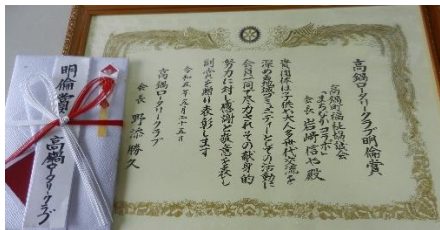 高鍋ロータリークラブ明倫賞
高鍋町福祉協議会
「まちなかコラボ」
会長 岩﨑信也殿
貴団体は子供や大人多世代交流を
深める地域コミュニティーとしての活動に
会員一同で尽力されその献身的
努力に対し感謝と敬意を表し
副賞を贈り表彰します
令和五年五月二十五日
高鍋ロータリークラブ
会長 野添勝久
明倫賞
高鍋ロータリークラブ